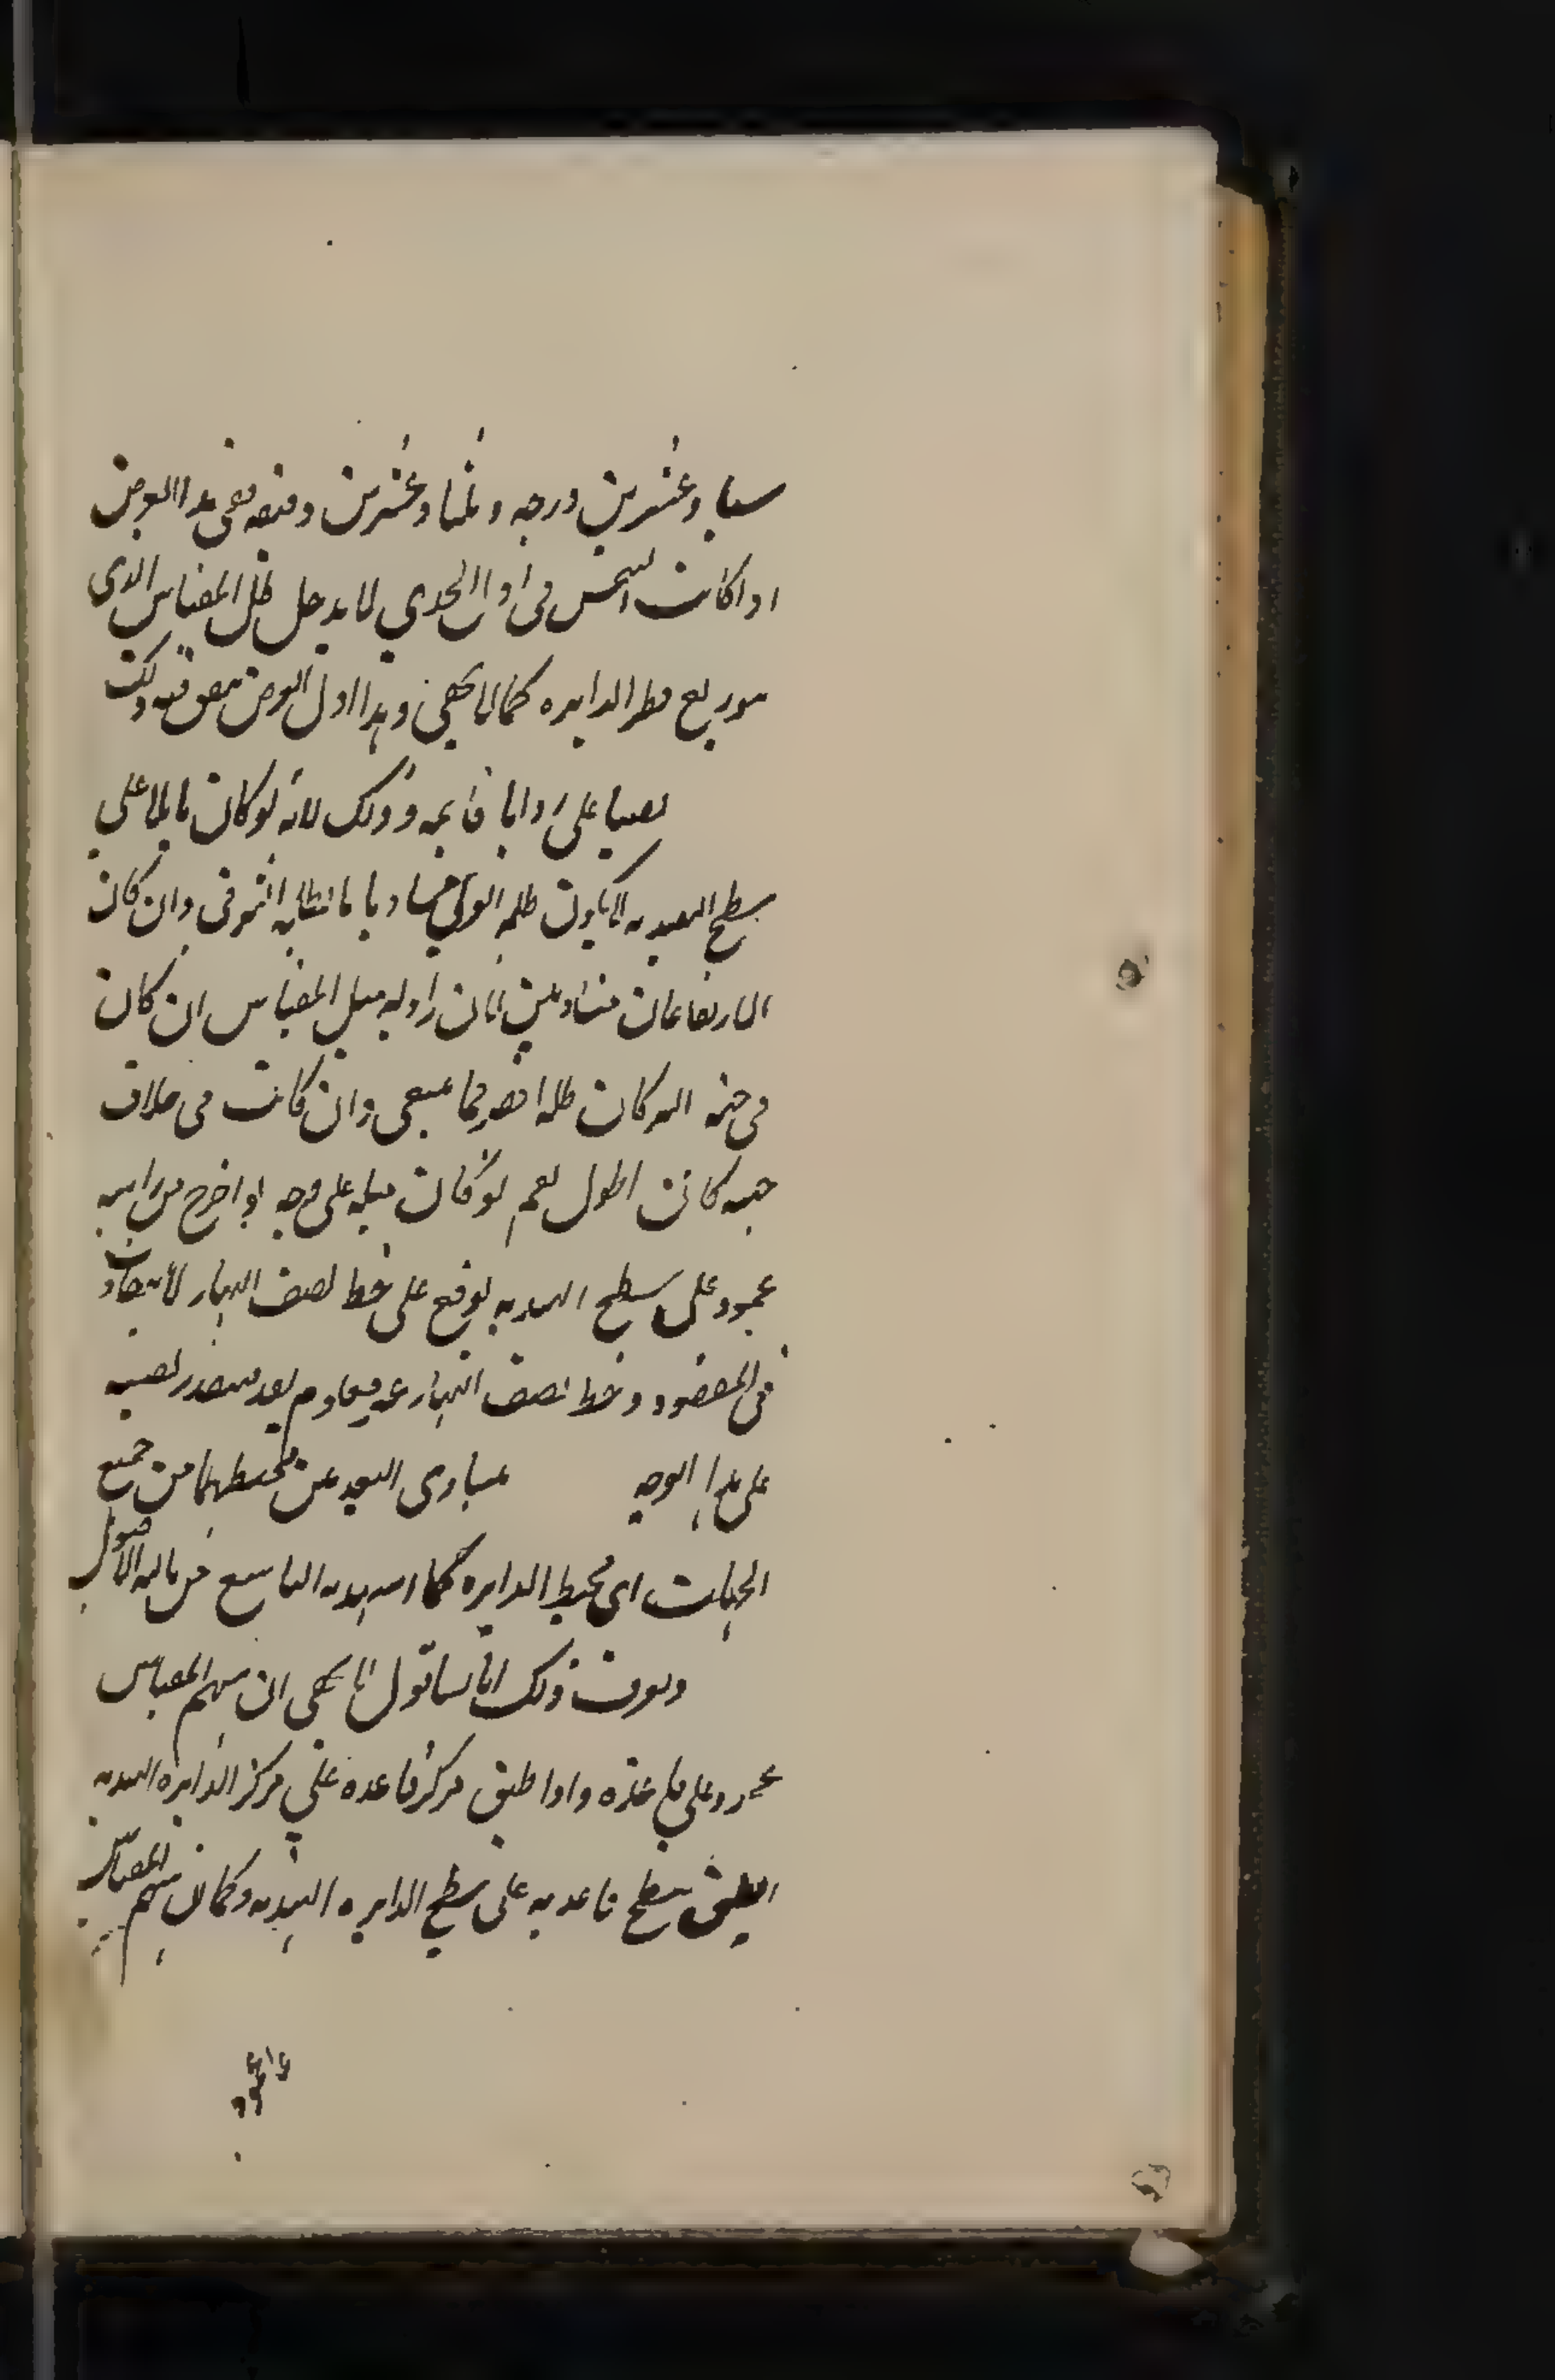 سبعا وعشرين درجه وثمنا وعشرين دقيقه ففى هذا العرض
اذا كانت الشمس فى اول الجدي لا يدخل ظل المقياس الذى
هو ربع قطر الدايره كما لا يخفى وهذا اول العرض
نصبا على زوايا قايمه وذلك لانه لو كان مايلا على
سطح الهنديه لا يكون ظله الغربى مساويا بالنظايه الشرقى وان كان
الارتفاعان متساويين لان زاويه ميل المقياس ان كان
فى جهة الـه كان ظله اقصر مما ينبغى وان كانت فى خلاف
جهه كانت اطول نعم لو كان ميله على وجه لو اخرج من راسه
عمود على سطح الهنديه لوقع على خط نصف النهار لا يتفاوت
فى المقصود وخط نصف النهار غير معلوم بعد فيتعذر نصبه
على هذا الوجه متساوى البعد عن محيطهما من جميع
الجهات اى محيط الدايره كما من ثالثه الاصول
ويعرف ذلك اقول لا يخفى ان سهم المقياس
عمود على قاعدته واذا طبق مركز قاعده على مركز الدايره الهنديه
انطبق سطح قاعدته على سطح الدايره الهنديه وكان سهم المقياس
عمودا